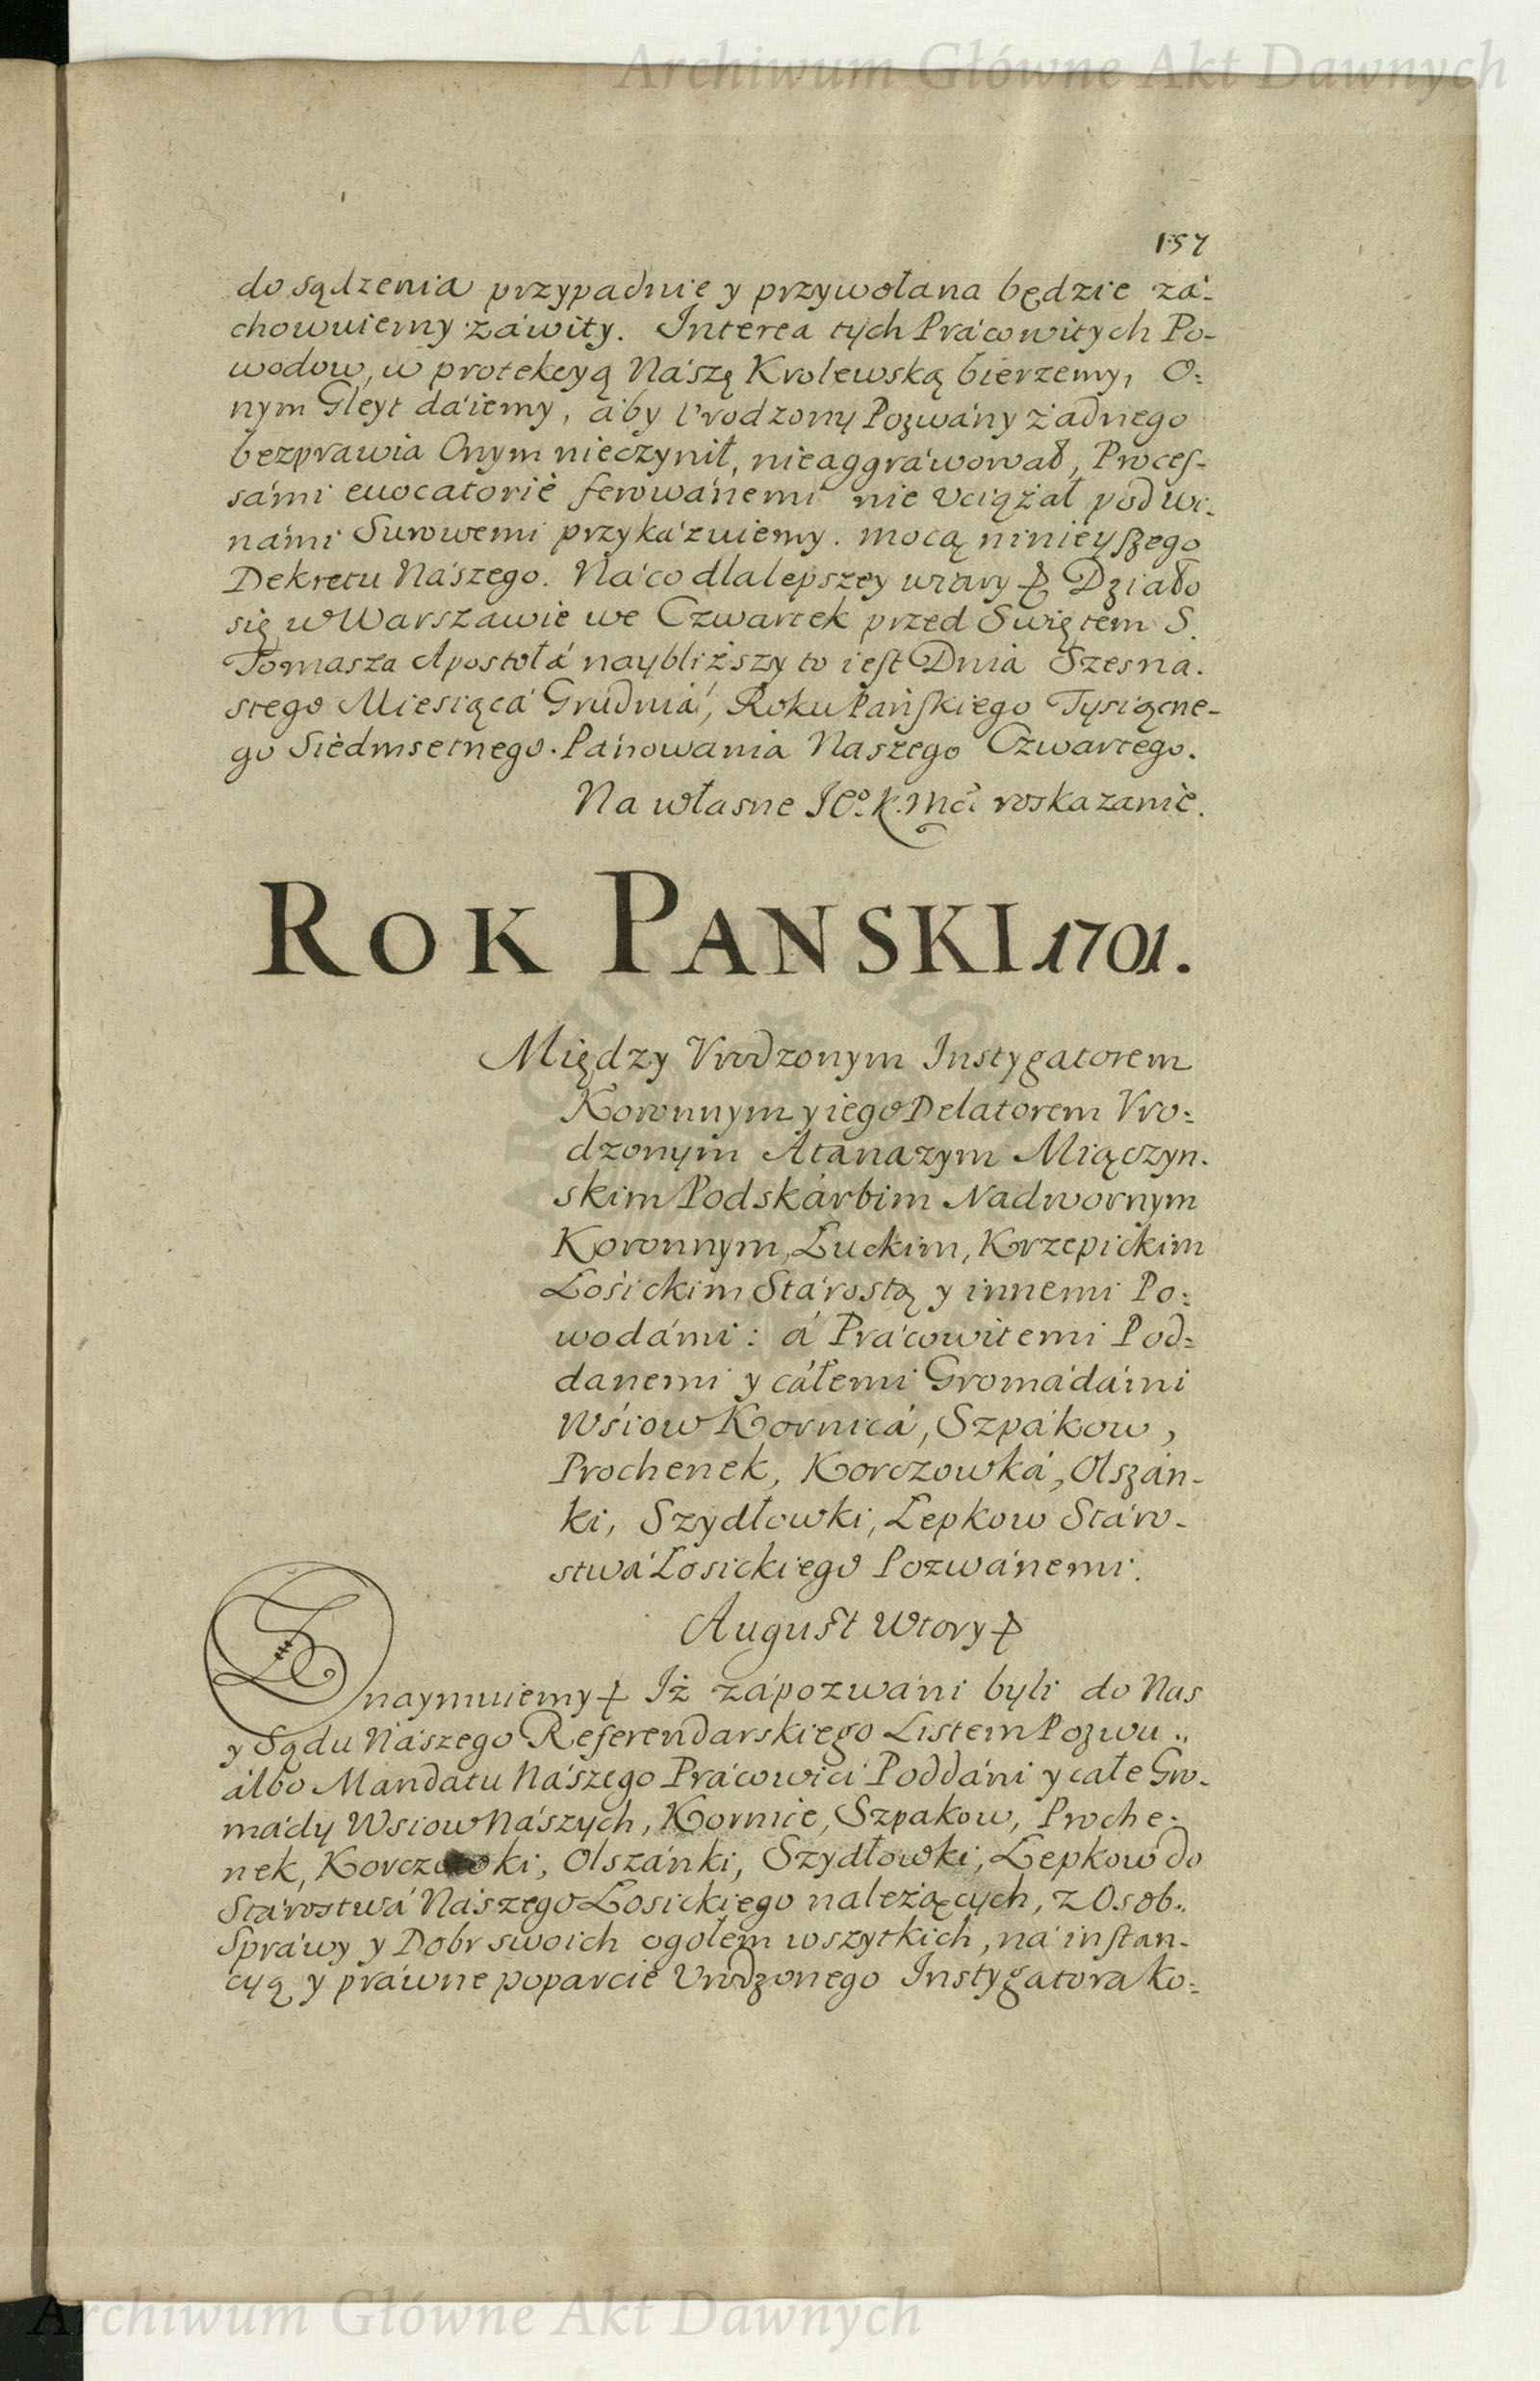 Archiwum Główne Akt Dawnych
157
do sądzenia przypadnie y przywołana będzie zá-
chowuiemy záwity. Interea tych Prácowitych Po-
wodow, w protekcyą Nászę Krolewską bierzemy, O=
nym Gleyt dáiemy, áby Vrodzony Pozwány żadnego
bezprawia Onym nieczynił, nieaggráwował, Proces-
sámi euocatorie ferowánemi nie vciążał pod wi-
námi Surowemi przykázuiemy. mocą ninieyszego
Dekretu Nászego. Ná co dla lepszey wiary & Działo
się w Warszawie we Czwartek przed Swiętem S.
Tomasza Apostołá naybliższy to iest Dnia Szesna-
stego Miesiącá Grudniá, Roku Pańskiego Tysiącne-
go Siedmsetnego. Pánowania Naszego Czwartego.
Na własne JEº. K. Mći roskazanie.
ROK PANSKI 1701.
Między Vrodzonym Instygatorem
Koronnym y iego Delatorem Vro=
dzonym Atanazym Miączyn-
skim Podskárbim Nadwornym
Koronnym, Łuckim, Krzepickim
Łosickim Stárostą y innemi Po=
wodámi: á Prácowitemi Pod=
danemi y cáłemi Gromádámi
Wśiow Kornicá, Szpákow,
Prochenek, Korczowká, Olszán-
ki, Szydłowki, Łepkow Stáro-
stwá Łosickiego Pozwánemi.
August Wtory &
Znaymuiemy & Iż zápozwáni byli do Nas
y Sądu Nászego Referendarskiego Listem Pozwu
álbo Mandatu Nászego Prácowici Poddáni y całe Gro-
mády Wsiow Nászych, Kornice, Szpakow, Proche-
nek, Korczowki, Olszánki, Szydłowki, Łepkow do
Stárostwá Nászego Łosickiego należących, z Osob.
Spráwy y Dobr swoich ogołem wszytkich, ná instan-
cyą y práwne poparcie Vrodzonego Instygatora Ko=
Archiwum Główne Akt Dawnych